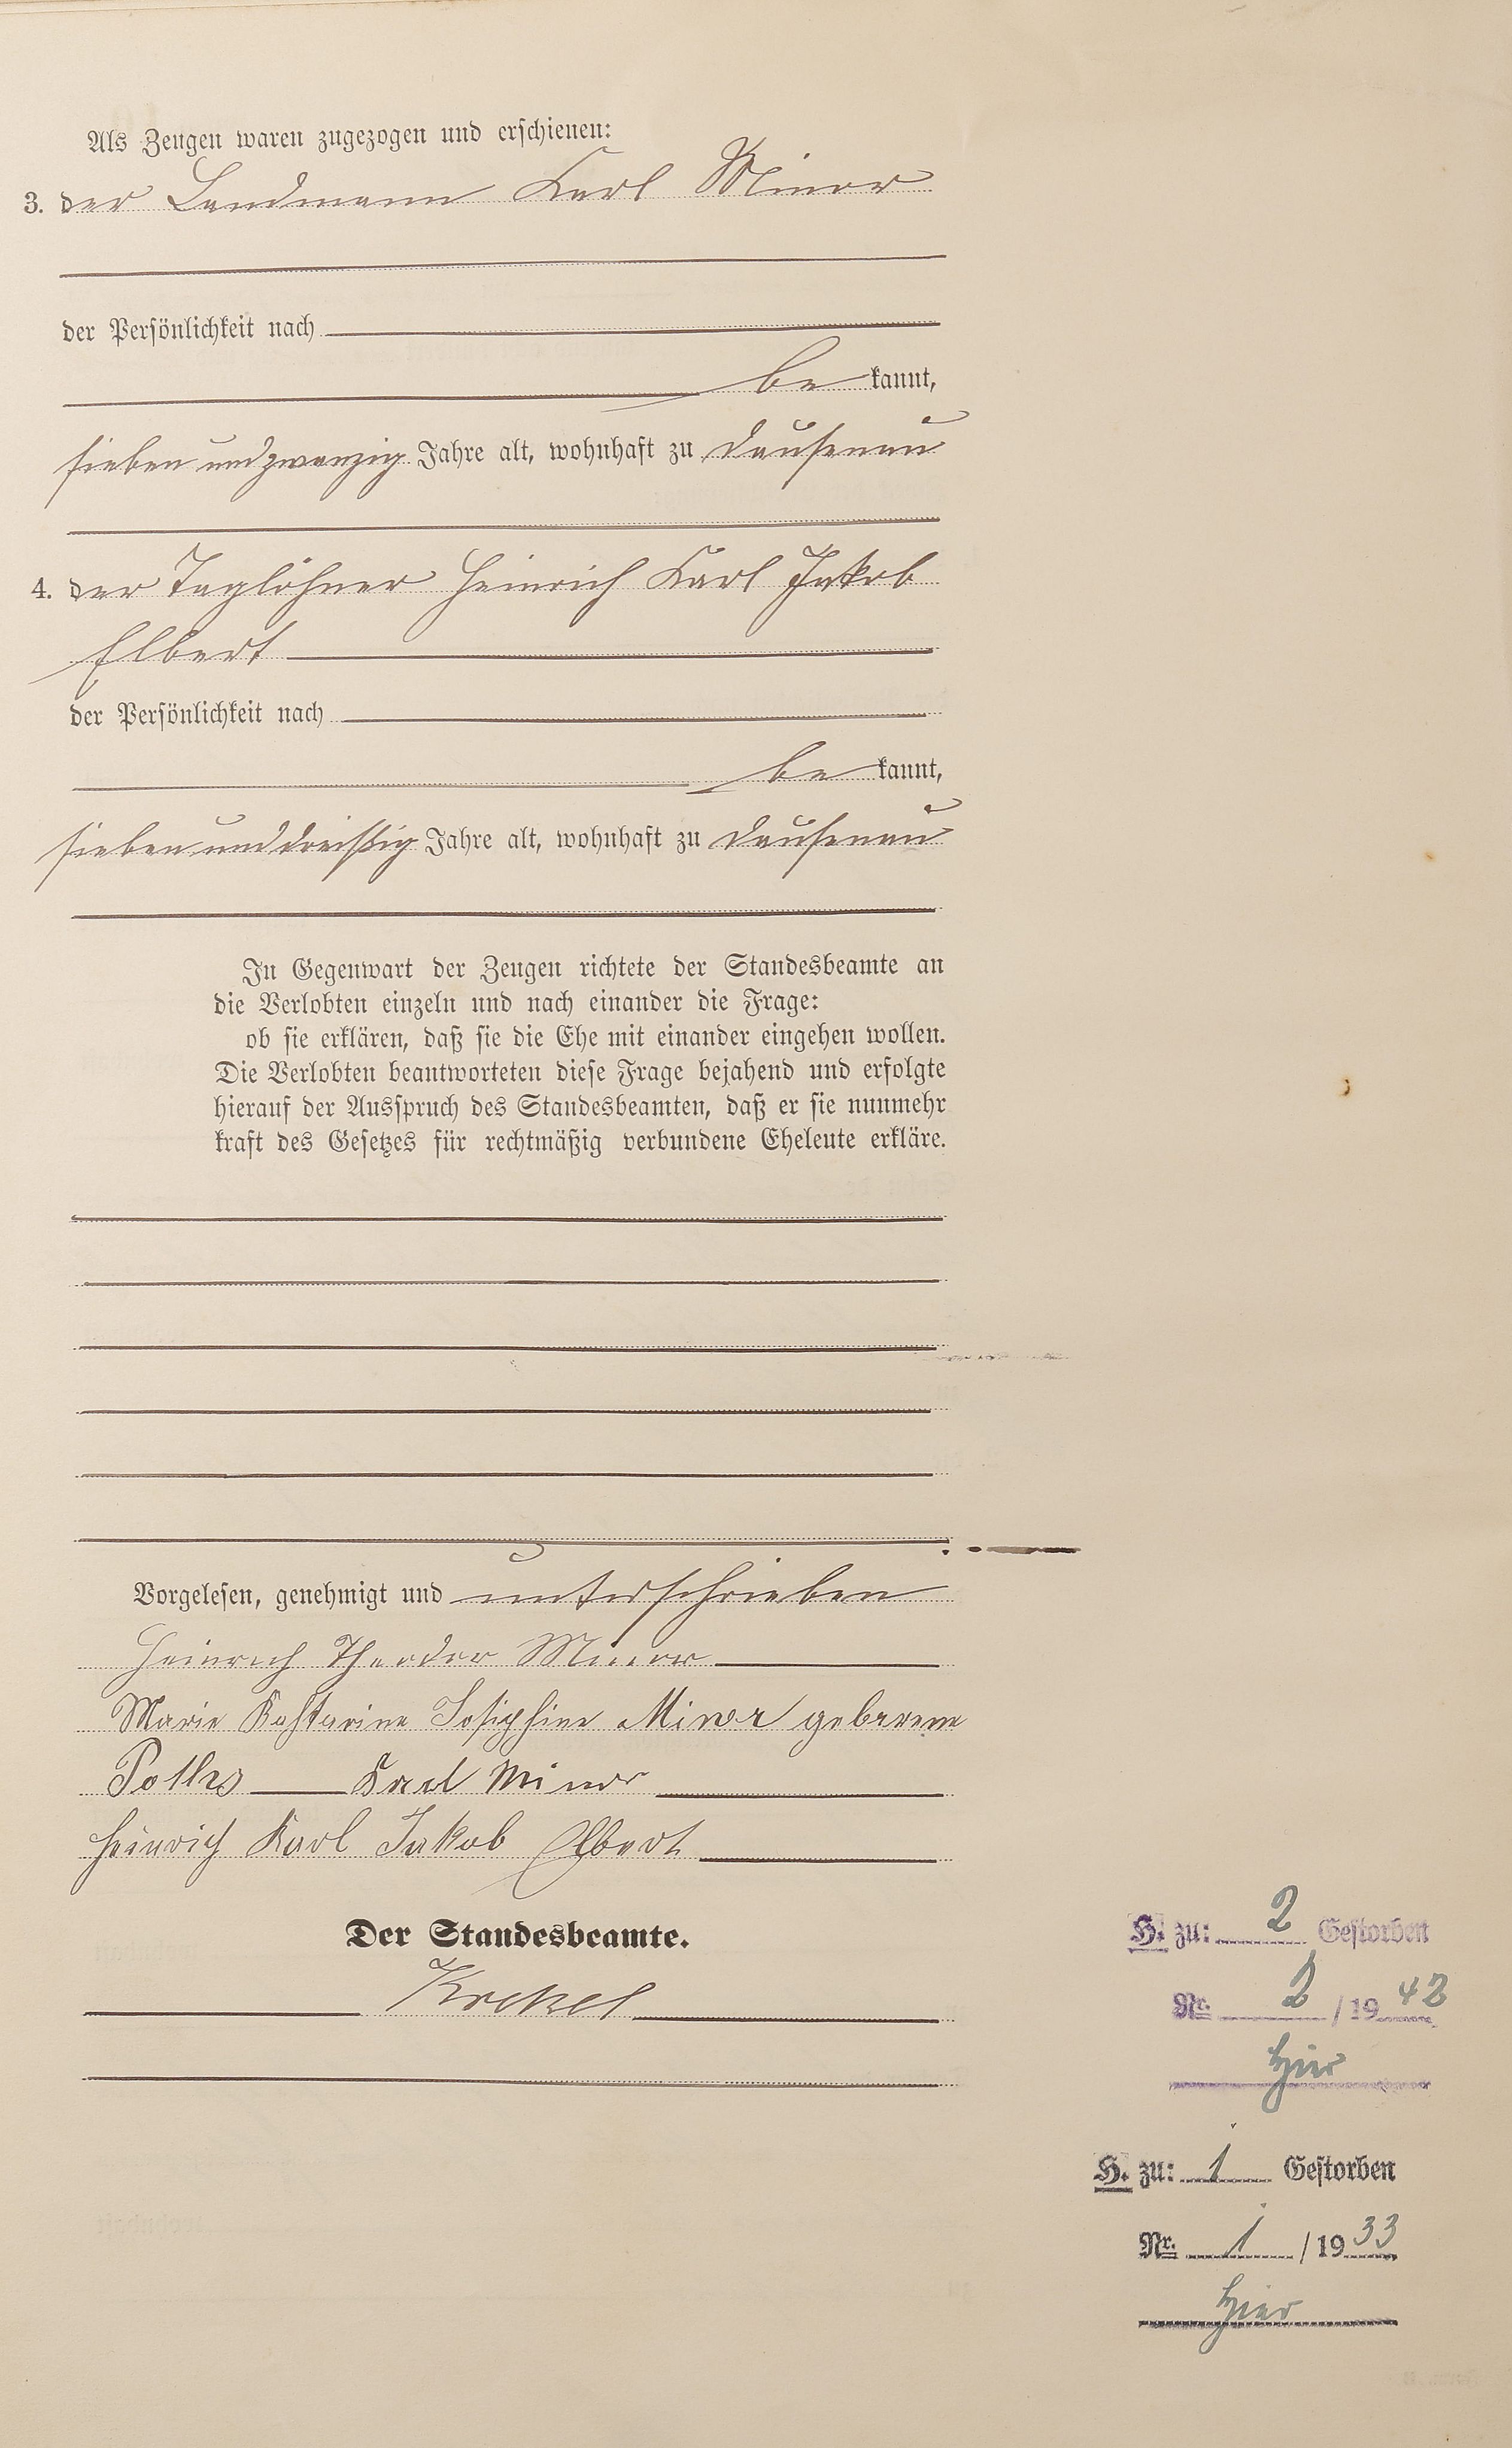 Als Zeugen waren zugezogen und erschienen:
3. der Landmann Karl Minor
der Persönlichkeit nach
be kannt,
sieben und zwanzig Jahre alt, wohnhaft zu Dausenau
4. der Taglöhner Heinrich Karl Jakob
Elbert
der Persönlichkeit nach
be kannt,
sieben und dreißig Jahre alt, wohnhaft zu Dausenau
In Gegenwart der Zeugen richtete der Standesbeamte an
die Verlobten einzeln und nach einander die Frage:
ob sie erklären, daß sie die Ehe mit einander eingehen wollen.
Die Verlobten beantworteten diese Frage bejahend und erfolgte
hierauf der Ausspruch des Standesbeamten, daß er sie nunmehr
kraft des Gesetzes für rechtmäßig verbundene Eheleute erkläre.
Vorgelesen, genehmigt und unterschrieben
Heinrich Theodor Minor
Marie Katharine Josephine Minor geborene
Karl Minor
Heinrich Karl Jakob Elbert
Der Standesbeamte.
Krekel
H. zu: 2 Gestorben
Nr. 2 / 19 42
hier
H. zu: 1 Gestorben
Nr. 1 / 19 33
hier